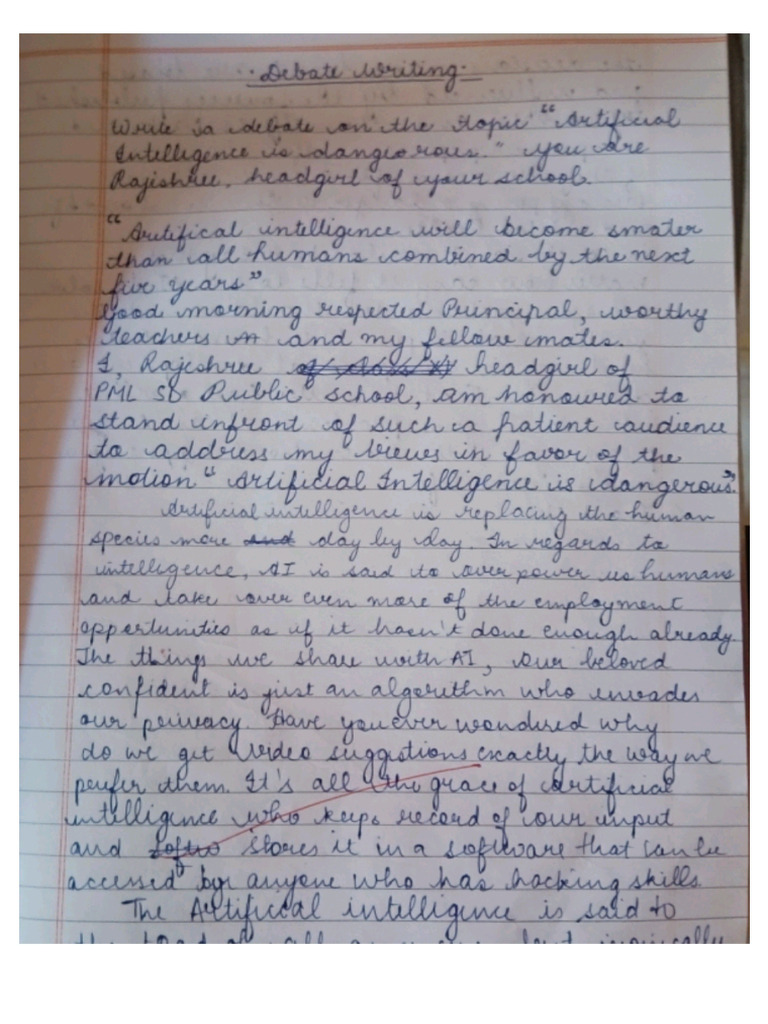 Debate Writing
Write a debate on the topic "Artificial
Intelligence is dangerous." You are
Rajishree, headgirl of your school.
"Artifical intelligence will become smater
than all humans combined by the next
five years"
Good morning respected Principal, worthy
teachers and my fellow mates.
I, Rajeshree headgirl of
PML SD Public school, am honoured to
stand infront of such a patient audience
to address my views in favor of the
motion "Artificial Intelligence is dangerous".
Artificial intelligence is replacing the human
species more and day by day. In regards to
intelligence, AI is said to overpower us humans
and take over even more of the employment
opportunities as if it hasn't done enough already.
The things we share with AI, our beloved
confident is just an algorithm who invades
our privacy. Have you ever wondered why
do we get video suggestions exactly the way we
prefer them. It's all the grace of artificial
intelligence who keeps record of our input
and stores it in a software that can be
accessed by anyone who has hacking skills
The Artificcal intelligence is said to